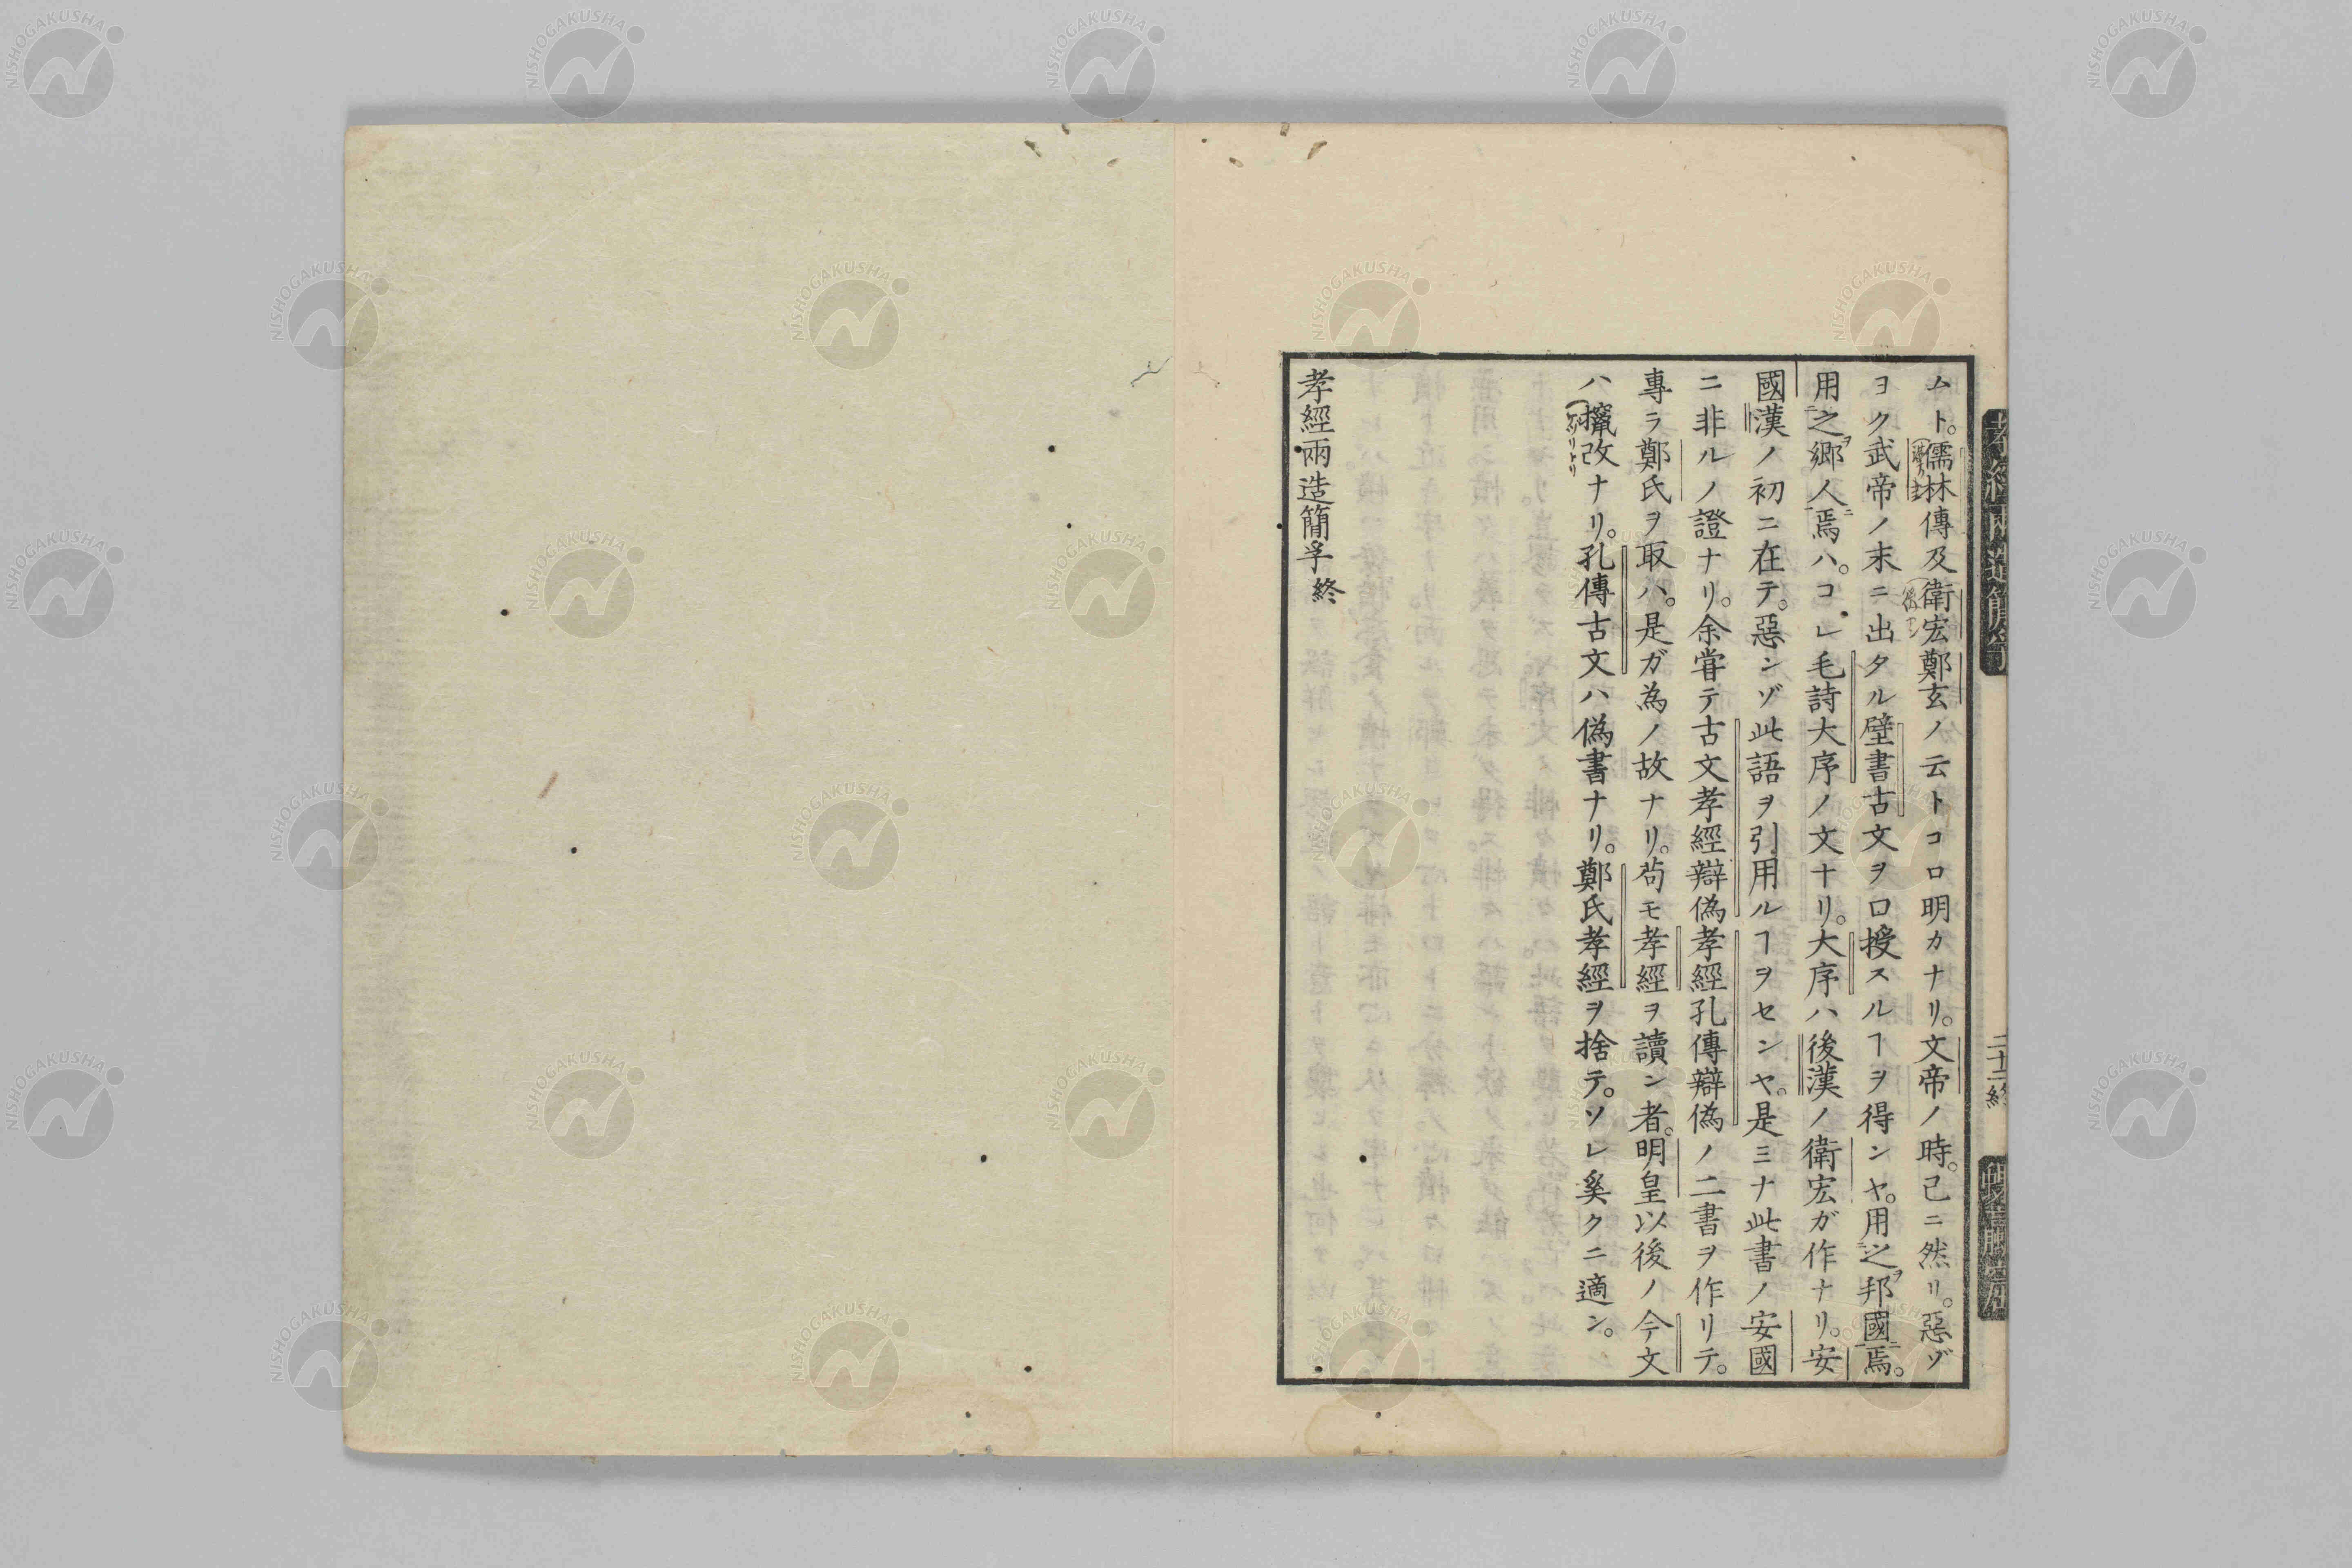 ムト。儒林傳及衛宏鄭玄ノ云トコロ明カナリ。文帝ノ時。已ニ然リ。惡ゾ
ヨク武帝ノ末ニ出タル壁書古文ヲ口授スルヿヲ得ンヤ。用之邦國焉。
用之郷人焉ハ。コレ毛詩大序ノ文ナリ。大序ハ後漢ノ衛宏ガ作ナリ。安
國漢ノ初ニ在テ。惡ンゾ此語ヲ引用ルヿヲセンヤ。是ミナ此書ノ安國
ニ非ルノ證ナリ。余甞テ古文孝經辯偽孝經孔傳辯偽ノ二書ヲ作リテ。
專ラ鄭氏ヲ取ハ。是ガ為ノ故ナリ。苟モ孝經ヲ讀ン者。明皇以後ノ今文
ハ攛改ナリ。孔傳古文ハ偽書ナリ。鄭氏孝經ヲ捨テ。ソレ奚クニ適ン。
孝經兩造簡孚終
二十二終
NISHOGAKUSHA